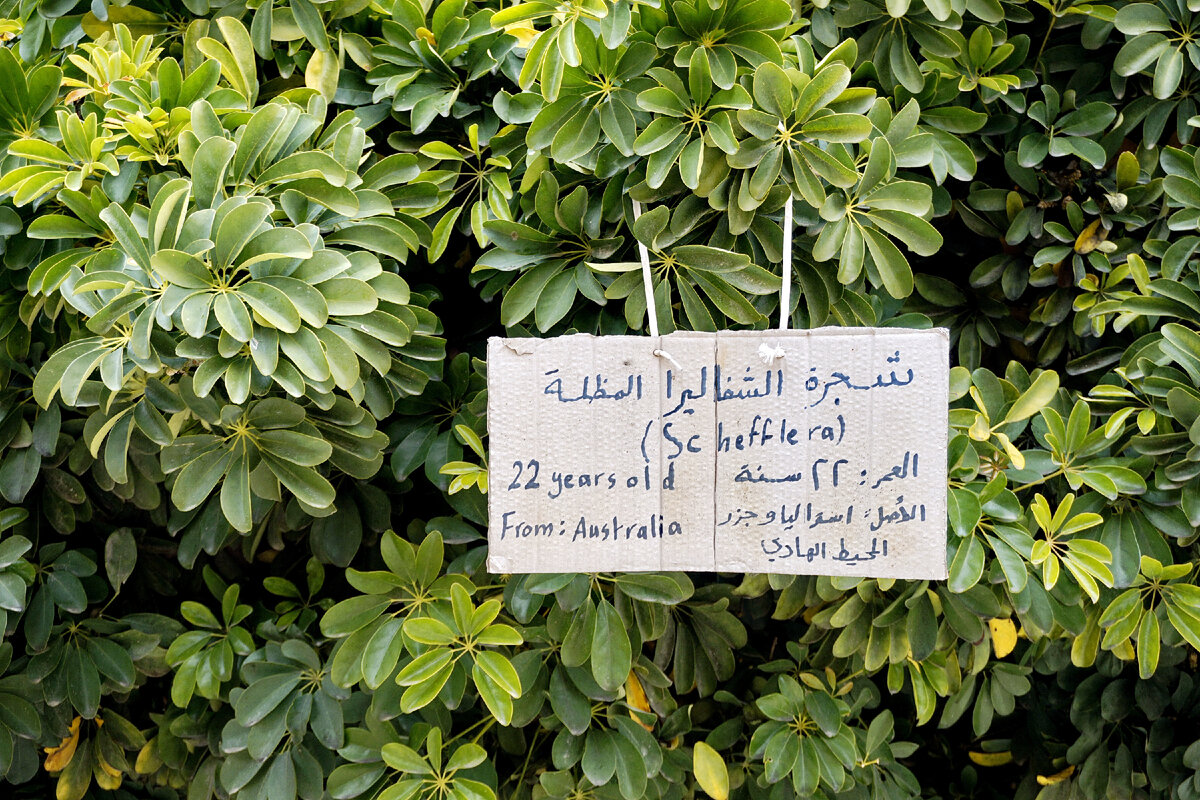 شجرة الشفاليرا المظلة
(Schefflera)
العمر: ٢٢ سنة
22 years old
الأصل: استراليا وجزر
From: Australia
المحيط الهادي